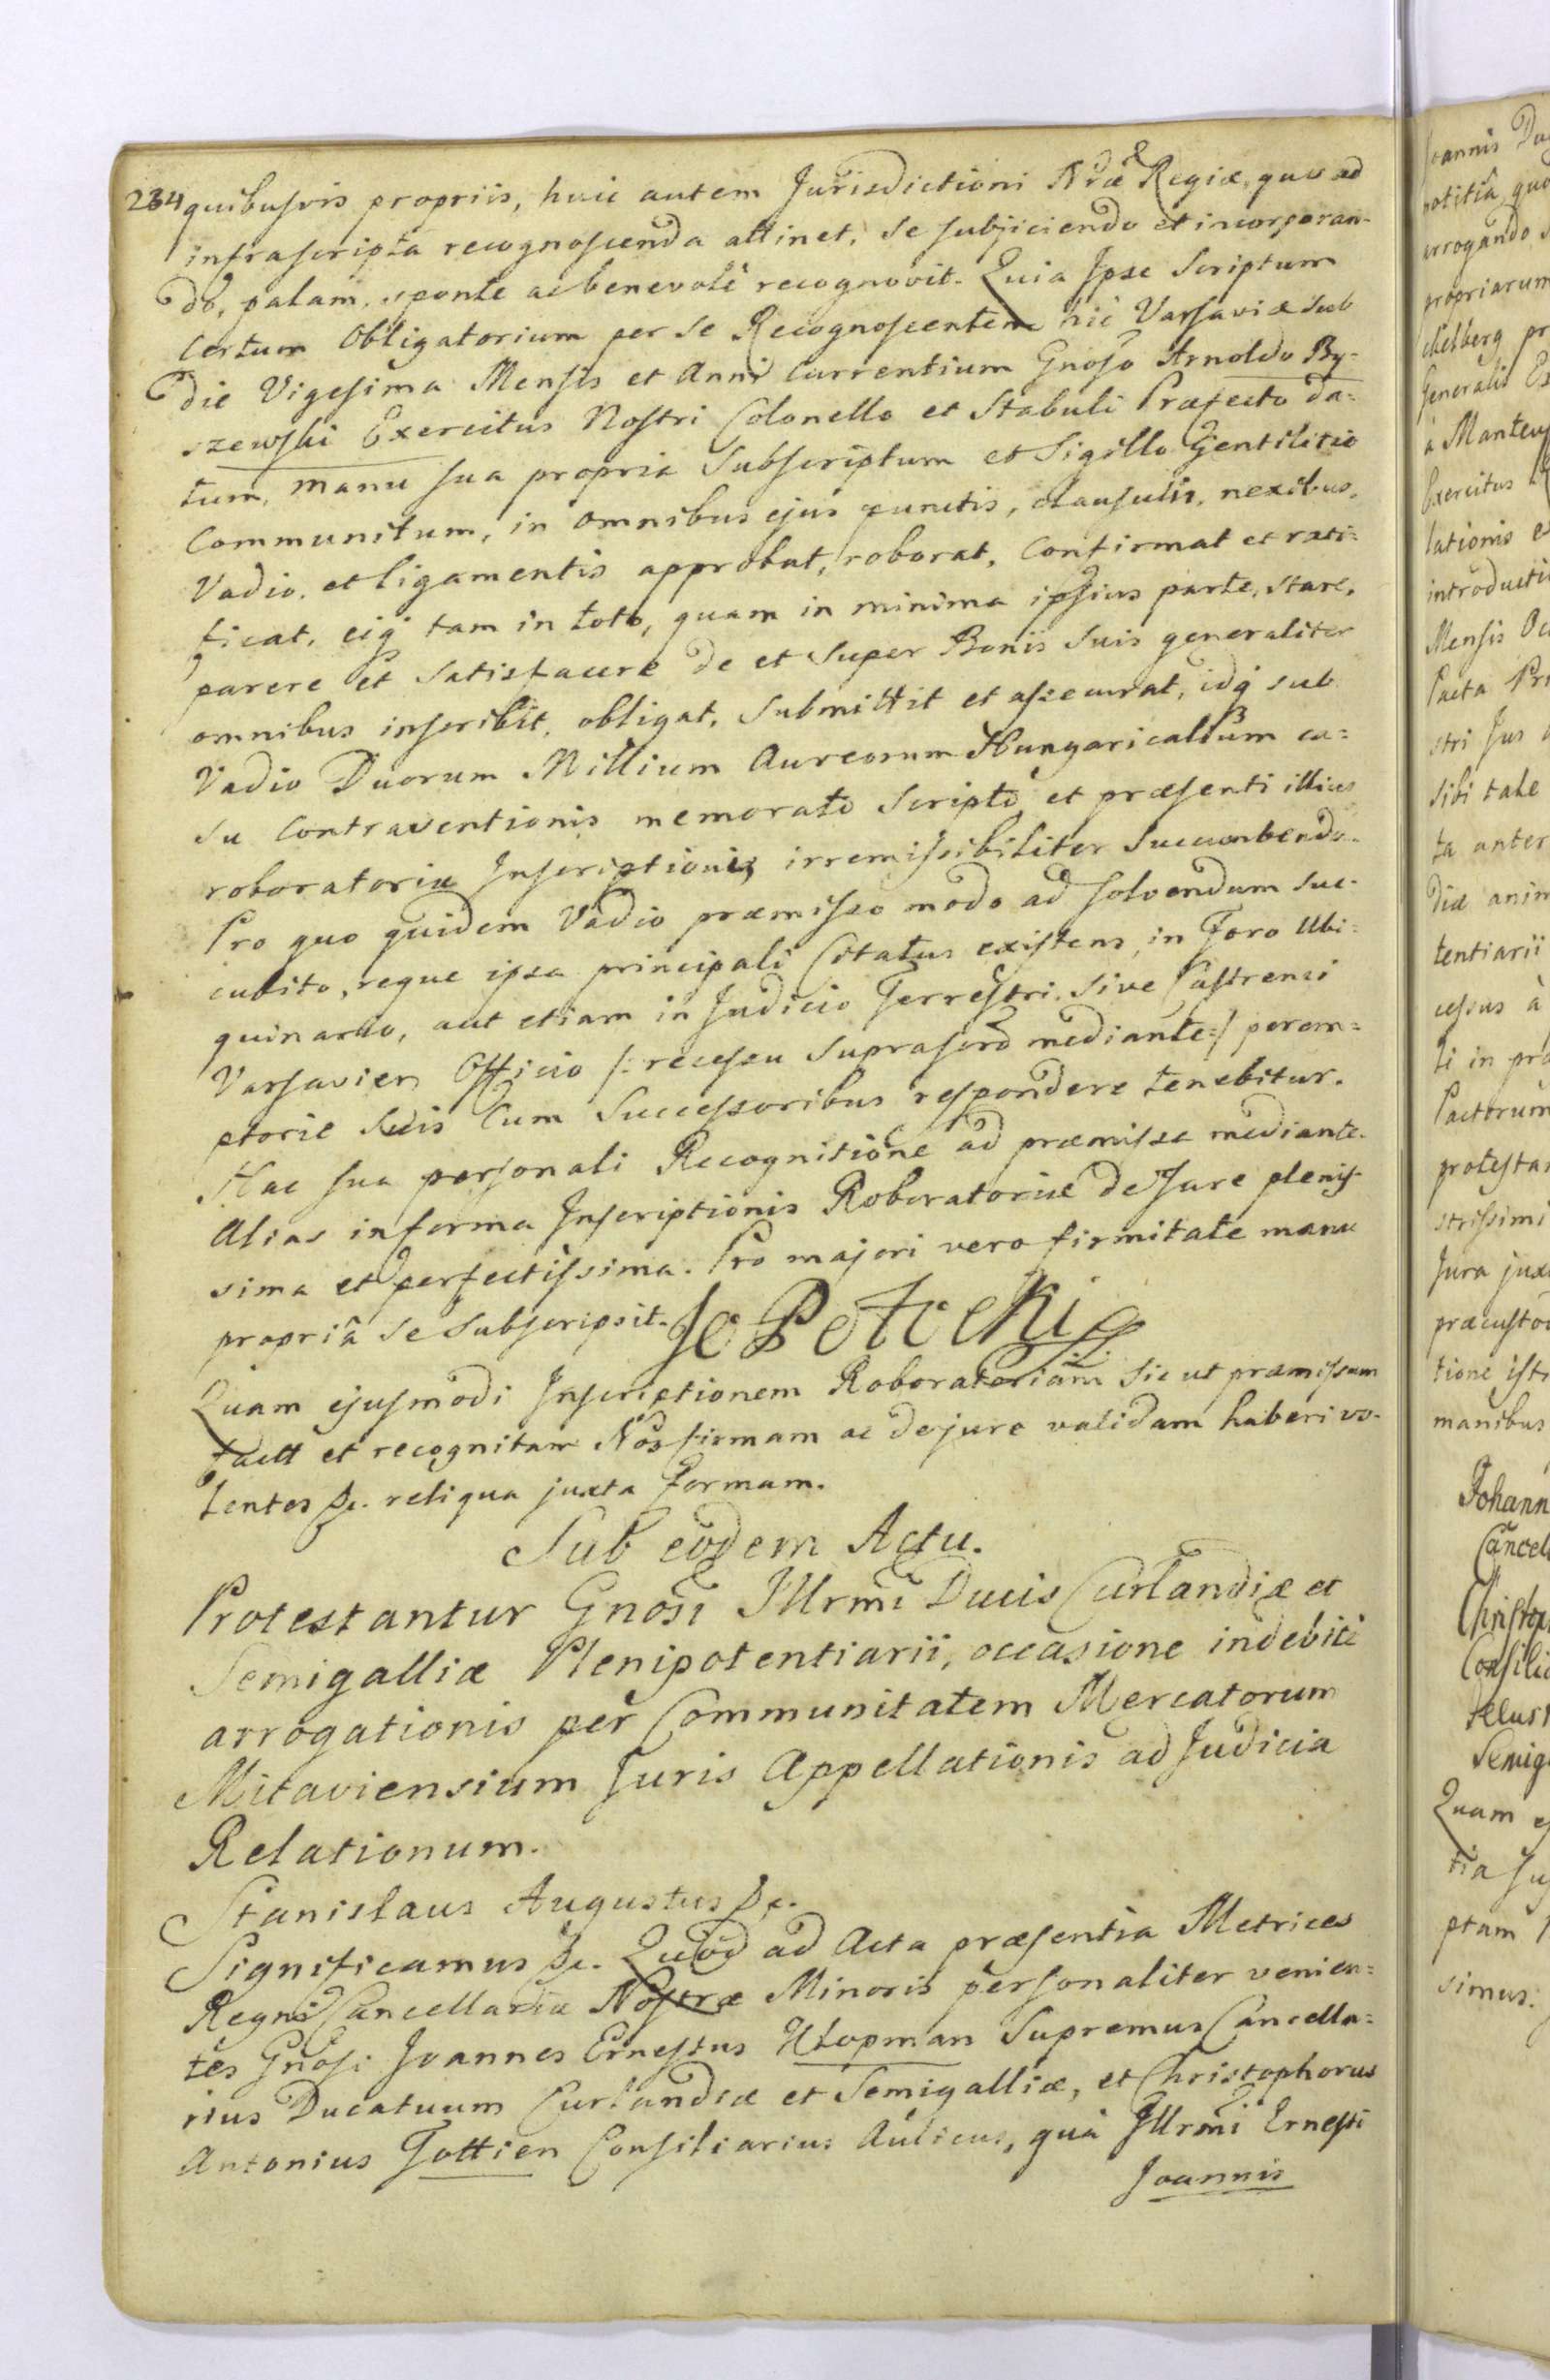 234 quibusvis propriis, huic autem Jurisdictioni Nræ Regiæ, quo ad
infrascripta recognoscenda attinet, se subjiciendo et incorporan-
do, palam, sponte ac benevole recognovit. Quia Ipse Scriptum
Certum Obligatorium per se Recognoscentem hic Varsaviæ sub
die Vigesima Mensis et Anni Currentium Gnoso Arnoldo By=
szewski Exercitus Nostri Colonello et Stabuli Præfecto da=
tum, manu sua propria Subscriptum et Sigillo Gentilitio
Communitum, in omnibus ejus punctis, clausulis, nexibus,
Vadio, et ligamentis approbat, roborat, Confirmat et rati=
ficat, eiq tam in toto, quam in minima ipsius parte, stare,
parere et Satisfacere de et Super Bonis Suis generaliter
omnibus inscribit, obligat, Submittit et assecurat, idq sub
Vadio Duorum Millium Aureorum Hungaricalium ca=
su Contraventionis memorato Scripto et præsenti illius
roboratoriæ Inscriptionis irremissibiliter Succumbendo.
Pro quo quidem Vadio præmisso modo ad solvendum suc-
cubito, reque ipsa principali Citatus existens, in Foro Ubi=
quinario, aut etiam in Judicio Terrestri, sive Castrensi
Varsavien Officio /: recessu suprascrõ mediante:/ perem=
ptorie suis Cum Successoribus respondere tenebitur.
Hac sua personali Recognitione ad præmissa mediante.
Alias in forma Inscriptionis Roboratoriæ de Jure plenis-
sima et perfectissima. Pro majori vero firmitate manu
propriâ se Subscripsit. Potocki
Quam ejusmodi Inscriptionem Roboratoriam Sic ut præmissum
factt et recognitam Nos firmam ac de jure validam haberi vo-
lentes &c. reliqua juxta formam.
Sub eodem Actu.
Protestantur Gnosi Illrmi Ducis Curlandiæ et
Semigalliæ Plenipotentiarii, occasione indebitè
arrogationis per Communitatem Mercatorum
Mitaviensium Juris Appellationis ad Judicia
Relationum.
Stanislaus Augustus &c.
Significamus &c. Quod ad Acta præsentia Metrices
Regni Cancellariæ Nostræ Minoris personaliter venien=
tes Gnosi Joannes Ernestus Klopman Supremus Cancella=
rius Ducatuum Curlandiæ et Semigalliæ, et Christophorus
Antonius Tottien Consiliarius Aulicus, quà Illrmi Ernesti
Joannis
Joannis
notitiâ quo
arrogando
propriarum
chelberg pr
Generali
à Manteuf
Exercitus
lationis e
introducti
Mensis
Pacta
stri Jus
Sibi tale
ta anter
diæ anim
tentiarii
cessus à
ti in præ
Pactorum
protesta
strissimi
Jura jux
præcusto
tione ist
manibus
Johann
Cancel
Christop
Consili
Semig
Quam
tia
ptam
simus.